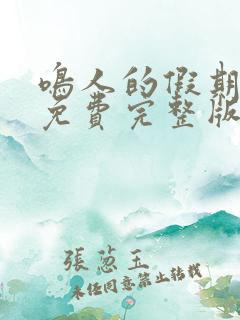 鳴人的假期
免費完整版
張蔥玉
未任同意禁止轉載